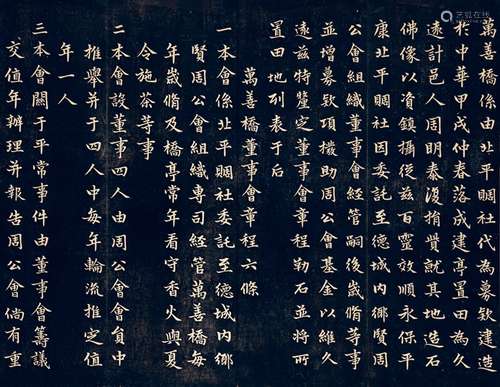 萬善橋係由北平賙社代為募欵建造
於中華甲戌仲春落成建亭置田為久
遠計邑人周明泰復捐貲就其地造石
佛像以資鎮攝從茲百靈效順永保平
康北平賙社因委託至德城內鄉賢周
公會組織董事會經管嗣後歲脩等事
並增募欵項撥助周公會基金以維久
遠茲特釐定董事會章程勒石並將所
置田地列表于后
萬善橋董事會章程六條
一本會係北平賙社委託至德城內鄉
賢周公會組織專司經管萬善橋每
年歲脩及橋亭常年看守香火與夏
令施茶等事
二本會設董事四人由周公會會員中
推舉并于四人中每年輪流推定值
年一人
三本會關于平常事件由董事會籌議
交值年辦理并報告周公會倘有重